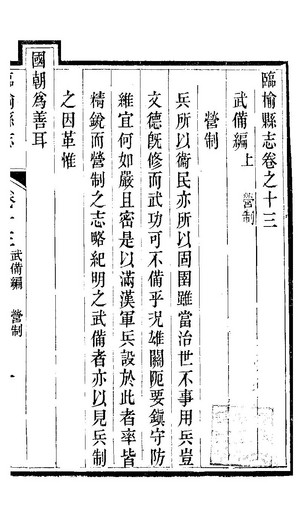 臨榆縣志卷之十三
武備編上 營制
營制
兵所以衞民亦所以固圉雖當治世不事用兵豈
文德旣修而武功可不備乎况雄關阨要鎮守防
維宜何如嚴且密是以滿漢軍兵設於此者率皆
精銳而營制之志略紀明之武備者亦以見兵制
之因革惟
國朝爲善耳
臨榆縣志 卷十三 武備編 營制 一